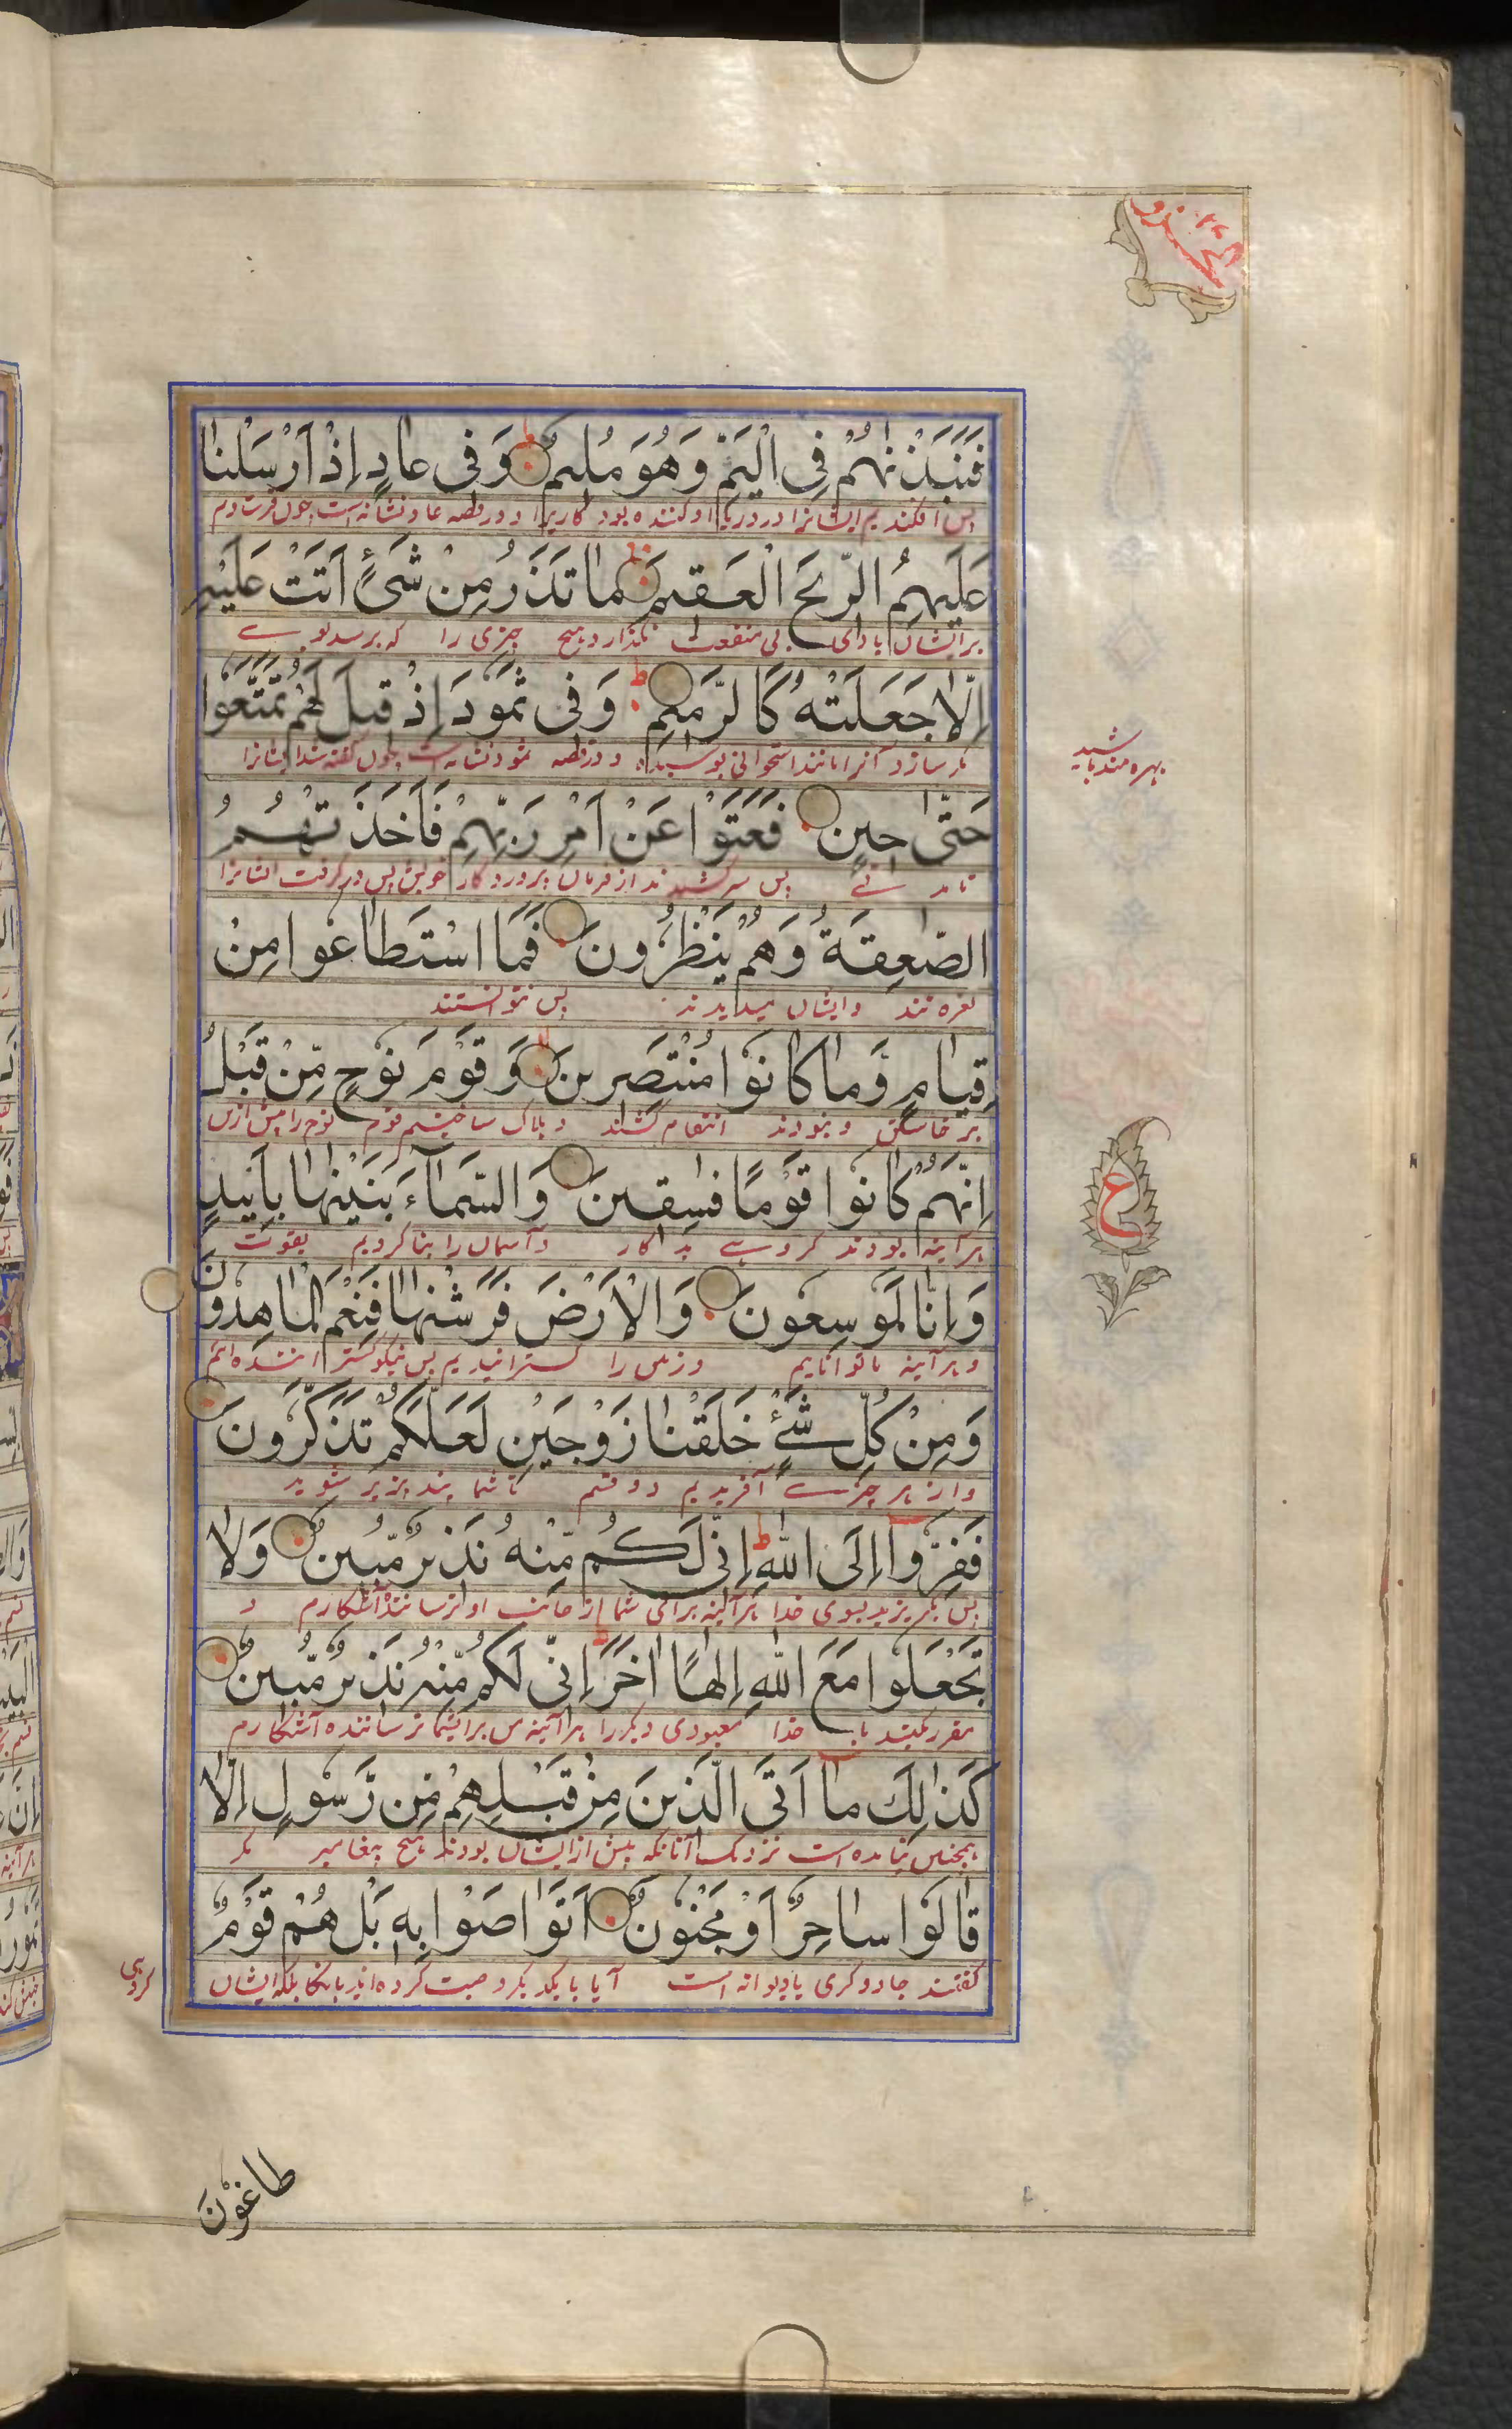 فَنَبَذْنٰهُمْ فِی الْیَمِّ وَهُوَ مُلِیمٌ وَفِی عادٍ اِذْ اَرْسَلْنا
پس افکندیم ایشانرا در دریا و او کننده بود کاریرا و در قصه عاد نشانه است چون فرستادیم
عَلَیْهِمُ الرِّیحَ الْعَقیمَ ما تَذَرُ مِنْ شَیْءٍ اَتَتْ عَلَیْهِ
بر ایشان بادی بی منفعت نگذارد هیچ چیزی را که برسد بوے
اِلّا جَعَلَتْهُ كَالرَّمیمِ وَفی ثَمُودَ اِذْ قیلَ لَهُمْ تَمَتَّعُوا
مگر سازد آنرا مانند استخوانی بوسیده و در قصه ثمود نشانه است چون گفته شد ایشانرا
بهره مند باشید
حَتّٰی حِینٍ فَعَتَوْا عَنْ اَمْرِ رَبِّهِمْ فَاَخَذَتْهُمُ
تا مدتے پس سر کشیدند از فرمان پروردگار خویش پس در گرفت ایشانرا
الصّٰعِقَةُ وَهُمْ یَنْظُرُونَ فَمَا اسْتَطاعُوا مِنْ
نعره تند و ایشان میدیدند پس نتوانستند
قِیامٍ وَّما كانُوا مُنْتَصِرینَ وَقَوْمَ نُوحٍ مِّنْ قَبْلُ
بر خاستن و نبودند انتقام کشند و هلاک ساختیم قوم نوح را پیش ازین
اِنَّهُمْ كانُوا قَوْمًا فٰسِقینَ وَالسَّمآءَ بَنَیْنٰها بِاَیْیدٍ
هر آینه بودند گروہے بدکار و آسمان را بنا کردیم بقوت
ع
وَاِنّا لَمُوسِعُونَ وَالْاَرْضَ فَرَشْنٰها فَنِعْمَ الْماهِدُونَ
و هر آینه ما توانایم و زمین را گسترانیدیم پس نیکو گستراننده ایم
وَمِنْ كُلِّ شَیْءٍ خَلَقْنا زَوْجَیْنِ لَعَلَّكُمْ تَذَكَّرُونَ
و از هر چیزے آفریدیم دو قسم تا شما پند پذیر شوید
فَفِرُّوا اِلَی اللّٰهِ اِنّی لَكُمْ مِّنْهُ نَذیرٌ مُّبینٌ وَلا
پس بگریزید بسوی خدا هر آینه برای شما از جانب او ترساننده آشکارم و
تَجْعَلُوا مَعَ اللّٰهِ اِلٰهًا اٰخَرَ اِنّی لَكُمْ مِّنْهُ نَذیرٌ مُّبینٌ
مقرر مکنید با خدا معبودی دیگر را هر آینه من برای شما ترساننده آشکارم
كَذٰلِكَ ما اَتَی الَّذینَ مِنْ قَبْلِهِمْ مِّنْ رَّسُولٍ اِلّا
همچنین نیامده است نزدیک آنانکه پیش از ایشان بودند هیچ پیغامبر مگر
قالُوا ساحِرٌ اَوْ مَجْنُونٌ اَتَواصَوْا بِهِ بَلْ هُمْ قَوْمٌ
گفتند جادوگری یا دیوانه است آیا با یکدیگر وصیت کرده اند بانکا بلکه ایشان
گروهی
طاغُونَ